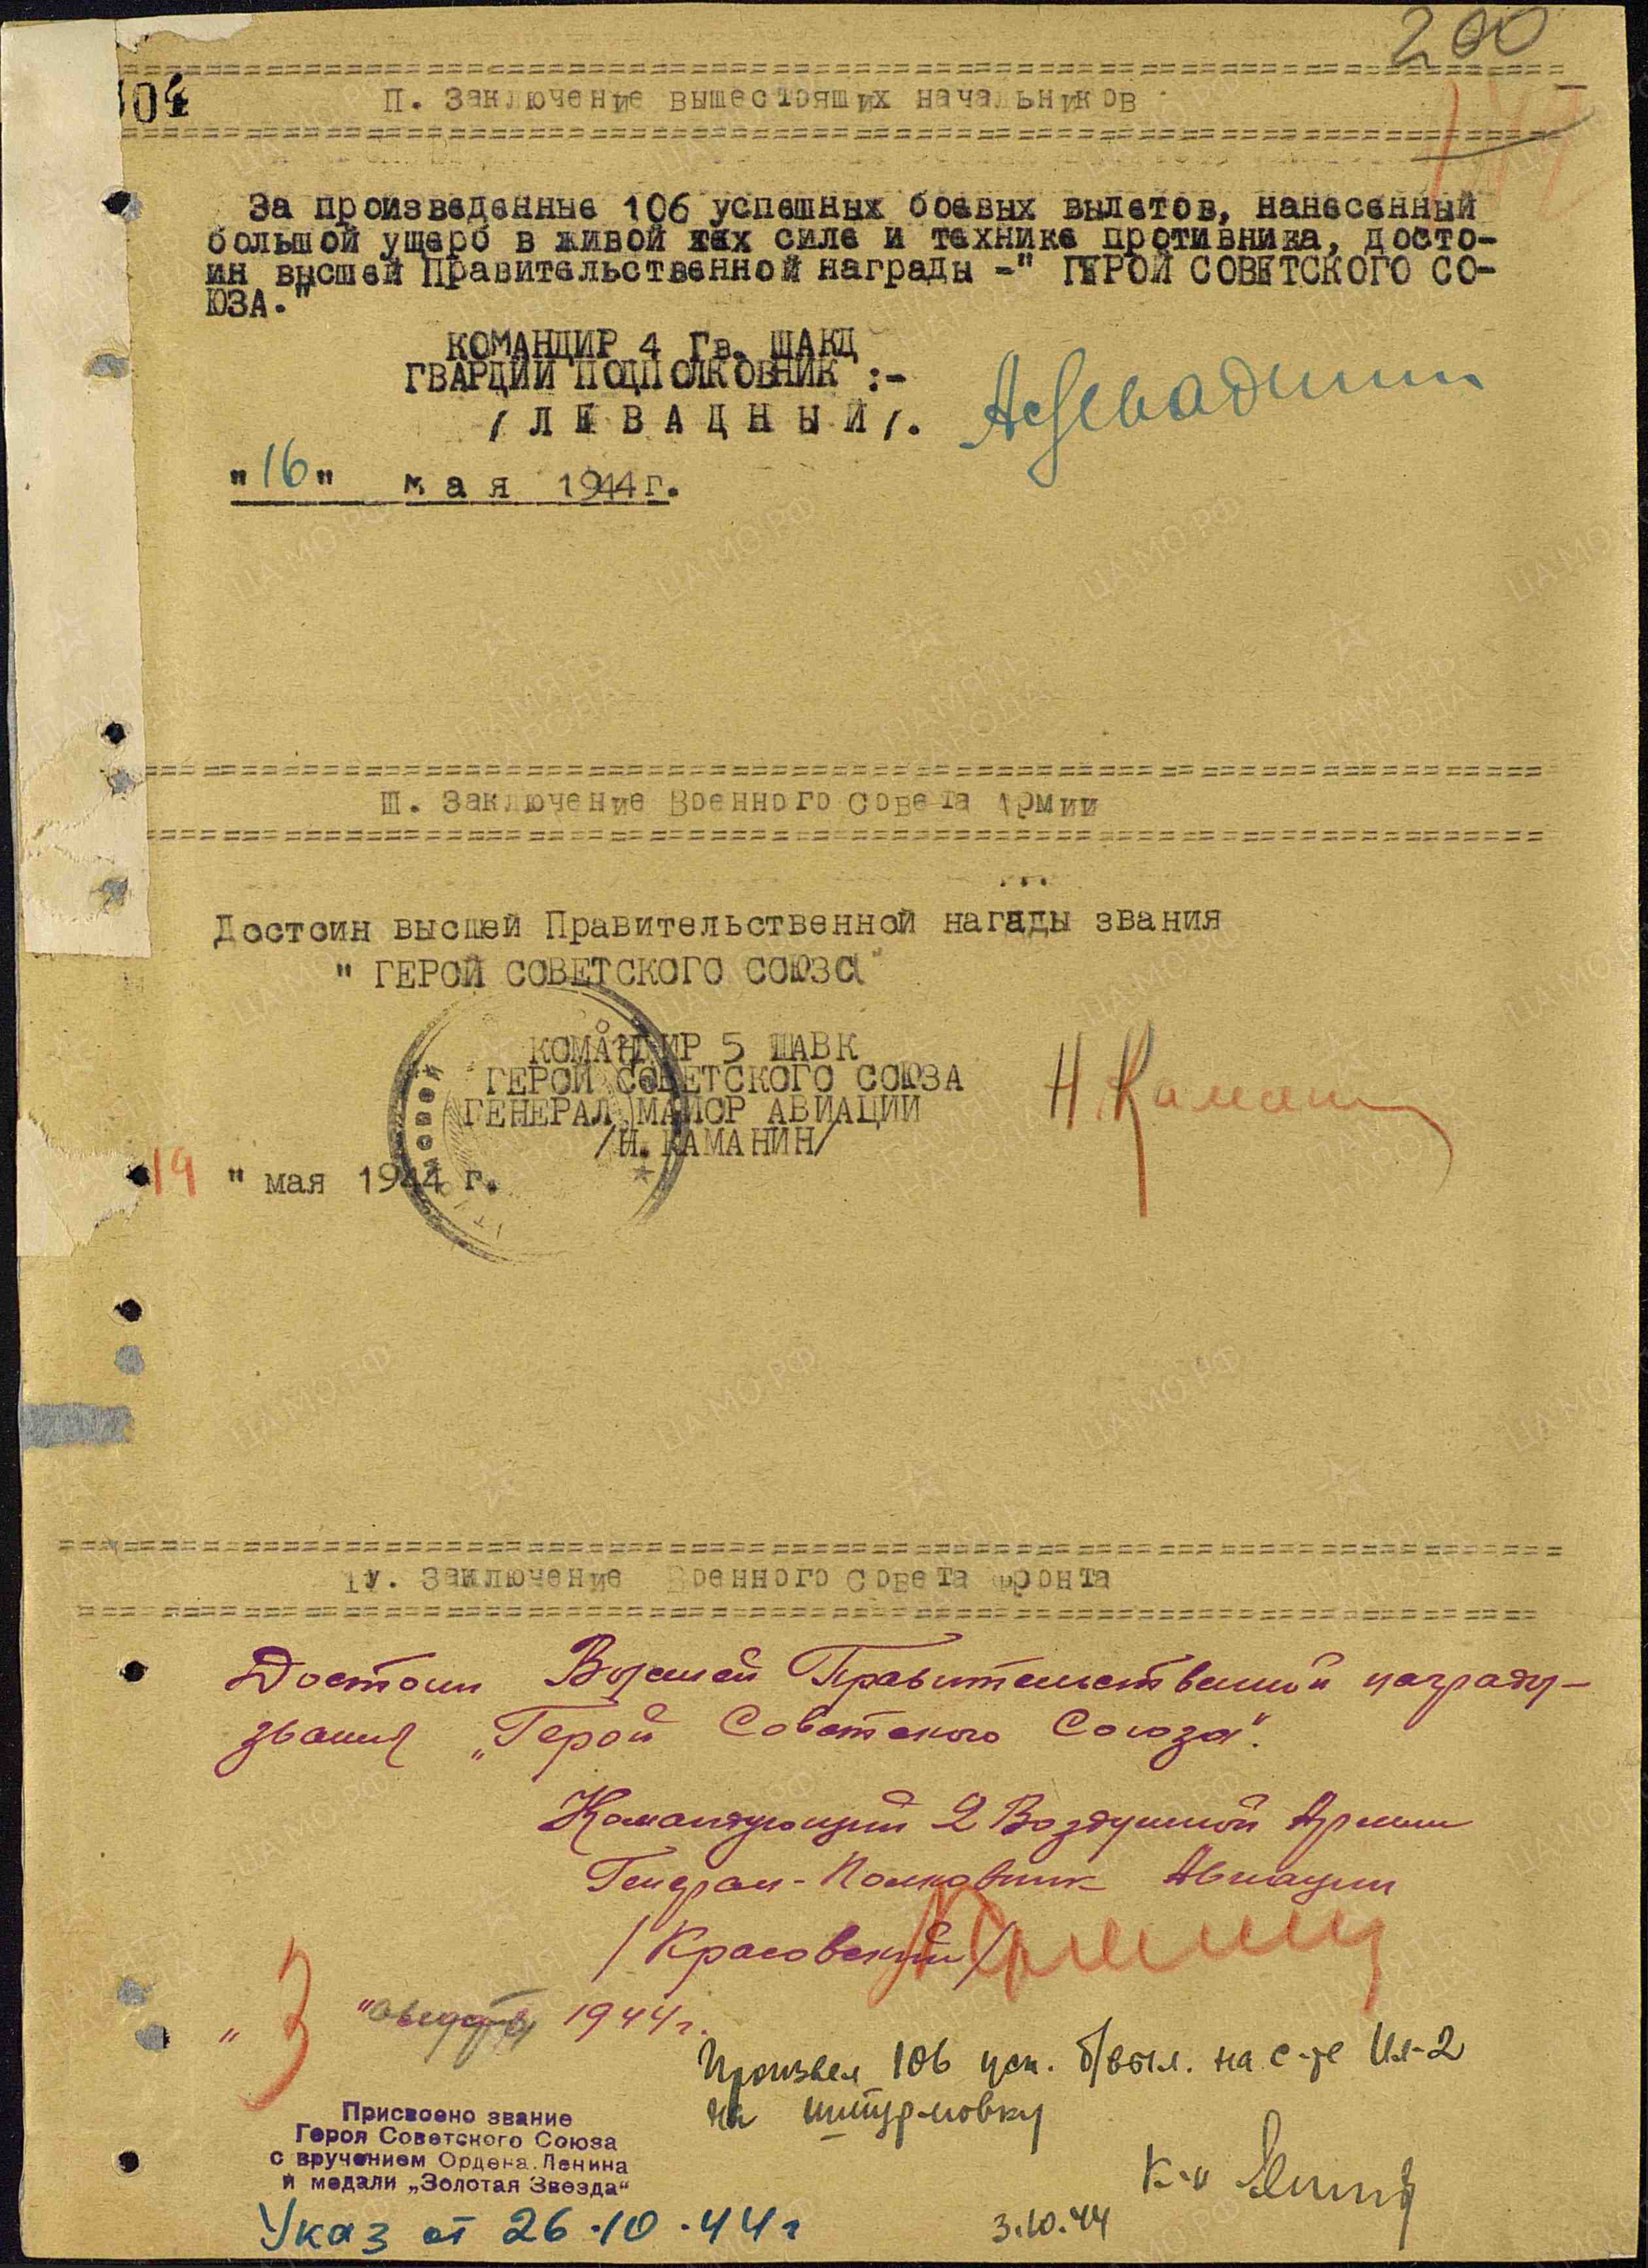 200
04
П. Заключение вышестоящих начальников
За произведенные 106 успешных боевых вылетов, нанесенный
большой ущерб в живой тех силе и технике противника, досто-
ин высшей Правительственной награды -" ГЕРОЙ СОВЕТСКОГО СО-
ЮЗА."
КОМАНДИР 4 Гв. ШАКД
ГВАРДИИ ПОДПОЛКОВНИК :-
/ Л Е В А Д Н Ы Й /.
"16" мая 1944г.
Ш. Заключение Военного Совета Армии
Достоин высшей Правительственной нагады звания
" ГЕРОЙ СОВЕТСКОГО СОЮЗа"
КОМАНДИР 5 ШАВК
ГЕРОЙ СОВЕТСКОГО СОЮЗА
ГЕНЕРАЛ МАЙОР АВИАЦИИ
/Н. КАМАНИН/
Н. Каманин
19 " мая 1944 г.
1У. Заключение Военного Совета Фронта
Достоин Высшей Правительственной награды-
звания „Герой Советского Союза".
Командующий 2 Воздушной Армии
Генерал-Полковник Авиации
/Красовский/
" 3 " августа 1944г.
Произвел 106 усп. б/выл. на с-те Ил-2
на штурмовку
Присвоено звание
Героя Советского Союза
с вручением Ордена Ленина
и медали „Золотая Звезда"
к-н
Указ от 26.10.44г
3.10.44
ЦА МО РФ
ПАМЯТЬ НАРОДА